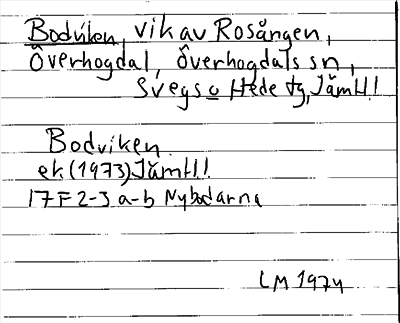 Bodviken, vik av Rosången,
Överhogdal, Överhogdals sn,
Svegs o Hede tg, Jämtl.l
Bodviken
ek (1973) Jämtl.l
17F 2-3 a-b Nybodarna
LM 1974